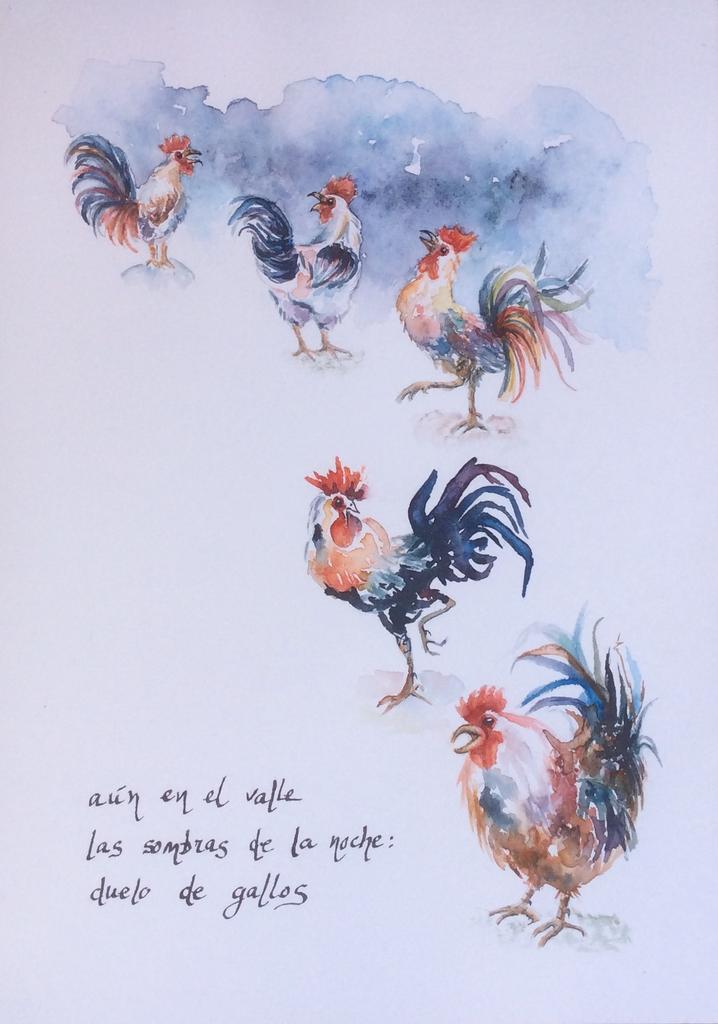 aún en el valle
las sombras de la noche:
duelo de gallos